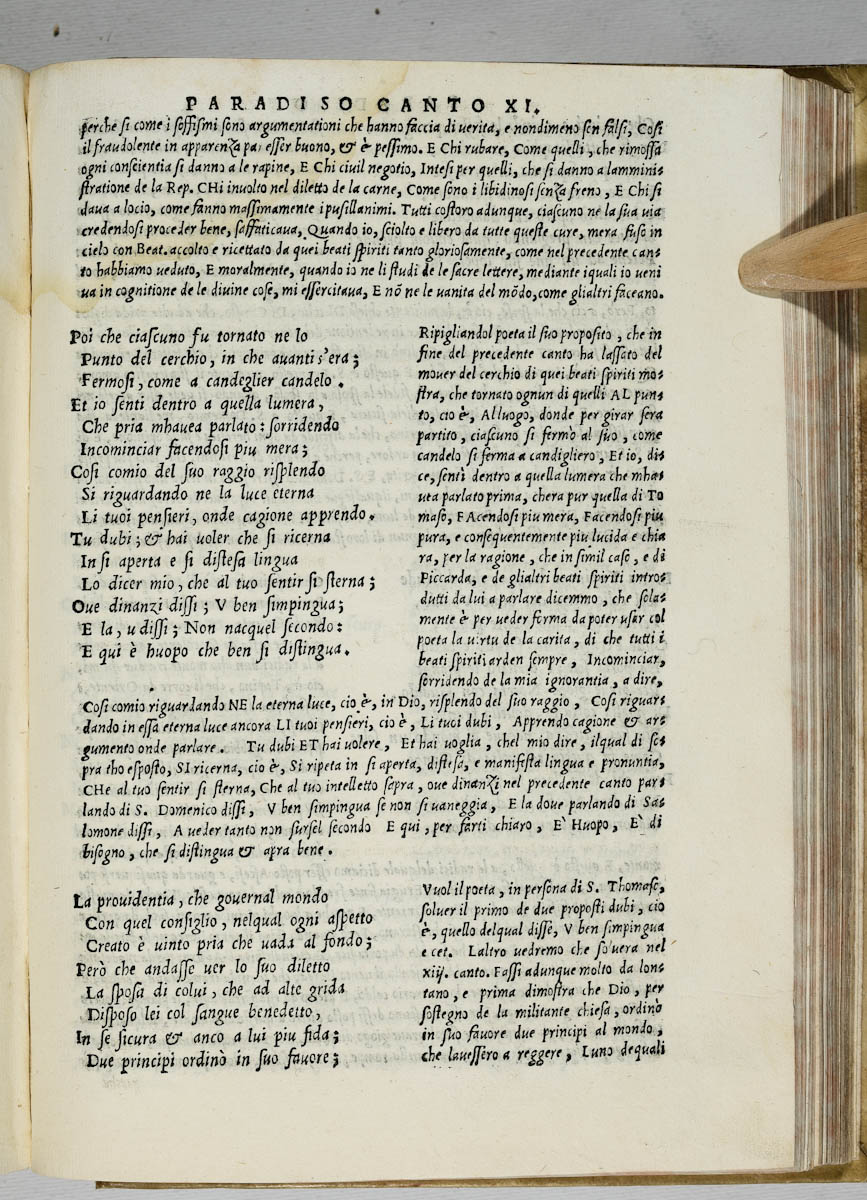 PARADISO CANTO XI.
perche si come i soffismi sono argumentationi che hanno faccia di verita, e nondimeno sen falsi, Cosi
il fraudolente in apparenza par esser buono, & è pessimo. E Chi rubare, Come quelli, che rimossa
ogni conscientia si danno a le rapine, E Chi civil negotio, Intesi per quelli, che si danno a lamminis-
stratione de la Rep. CHi involto nel diletto de la carne, Come sono i libidinosi senza freno, E Chi si
dava a locio, come fanno massimamente i pusillanimi. Tutti costoro adunque, ciascuno ne la sua via
credendosi proceder bene, saffaticava, Quando io, sciolto e libero da tutte queste cure, mera suso in
cielo con Beat. accolto e ricettato da quei beati spiriti tanto gloriosamente, come nel precedente can-
to habbiamo veduto, E moralmente, quando io ne li studi de le sacre lettere, mediante iquali io veni
va in cognitione de le divine cose, mi essercitava, E nõ ne le vanita del mõdo, come glialtri faceano.
Poi che ciascuno fu tornato ne lo
Punto del cerchio, in che avanti s'era;
Fermosi, come a candeglier candelo.
Et io senti dentro a quella lumera,
Che pria mhauea parlato: sorridendo
Incominciar facendosi piu mera;
Cosi comio del suo raggio risplendo
Si riguardando ne la luce eterna
Li tuoi pensieri, onde cagione apprendo.
Tu dubi; & hai voler che si ricerna
In si aperta e si distesa lingua
Lo dicer mio, che al tuo sentir si sterna;
Oue dinanzi dissi; V ben simpingua;
E la, u dissi; Non nacquel secondo:
E qui è huopo che ben si distingua.
Ripigliandol poeta il suo proposito, che in
fine del precedente canto ha lassato del
mover del cerchio di quei beati spiriti mo-
stra, che tornato ognun di quelli AL pun-
to, cio è, Al luogo, donde per girar sera
partito, ciascuno si fermò al suo, come
candelo si ferma a candigliero, Et io, di-
ce, senti dentro a quella lumera che mha-
uea parlato prima, chera pur quella di To
maso, FAcendosi piu mera, Facendosi piu
pura, e consequentemente piu lucida e chia
ra, per la ragione, che in simil caso, e di
Piccarda, e de glialtri beati spiriti intro-
dutti da lui a parlare dicemmo, che sola-
mente è per veder forma da poter usar col
poeta la virtu de la carita, di che tutti i
beati spiriti arden sempre, Incominciar,
sorridendo de la mia ignorantia, a dire,
Cosi comio riguardando NE la eterna luce, cio è, in Dio, risplendo del suo raggio, Cosi riguar-
dando in essa eterna luce ancora LI tuoi pensieri, cio è, Li tuoi dubi, Apprendo cagione & ar-
gumento onde parlare. Tu dubi ET hai volere, Et hai voglia, chel mio dire, ilqual di so-
pra tho esposto, SI ricerna, cio è, Si ripeta in si aperta, distesa, e manifesta lingua e pronuntia,
CHe al tuo sentir si sterna, Che al tuo intelletto sopra, oue dinanzi nel precedente canto par-
lando di S. Domenico dissi, V ben simpingua se non si vaneggia, E la doue parlando di Sa-
lomone dissi, A veder tanto non sursel secondo E qui, per farti chiaro, E' Huopo, E' di
bisogno, che si distingua & apra bene.
La prouidentia, che governal mondo
Con quel consiglio, nelqual ogni aspetto
Creato è uinto pria che uada al fondo;
Però che andasse uer lo suo diletto
La sposa di colui, che ad alte grida
Disposo lei col sangue benedetto,
In se sicura & anco a lui piu fida;
Due principi ordinò in suo fauore;
Vuol il poeta, in persona di S. Thomaso,
soluer il primo de due proposti dubi, cio
è, quello delqual disse, V ben simpingua
e cet. Laltro vedremo che solvera nel
xiij. canto. Fassi adunque molto da lon-
tano, e prima dimostra che Dio, per
sostegno de la militante chiesa, ordinò
in suo favore due principi al mondo,
che lauessero a reggere, Luno dequali